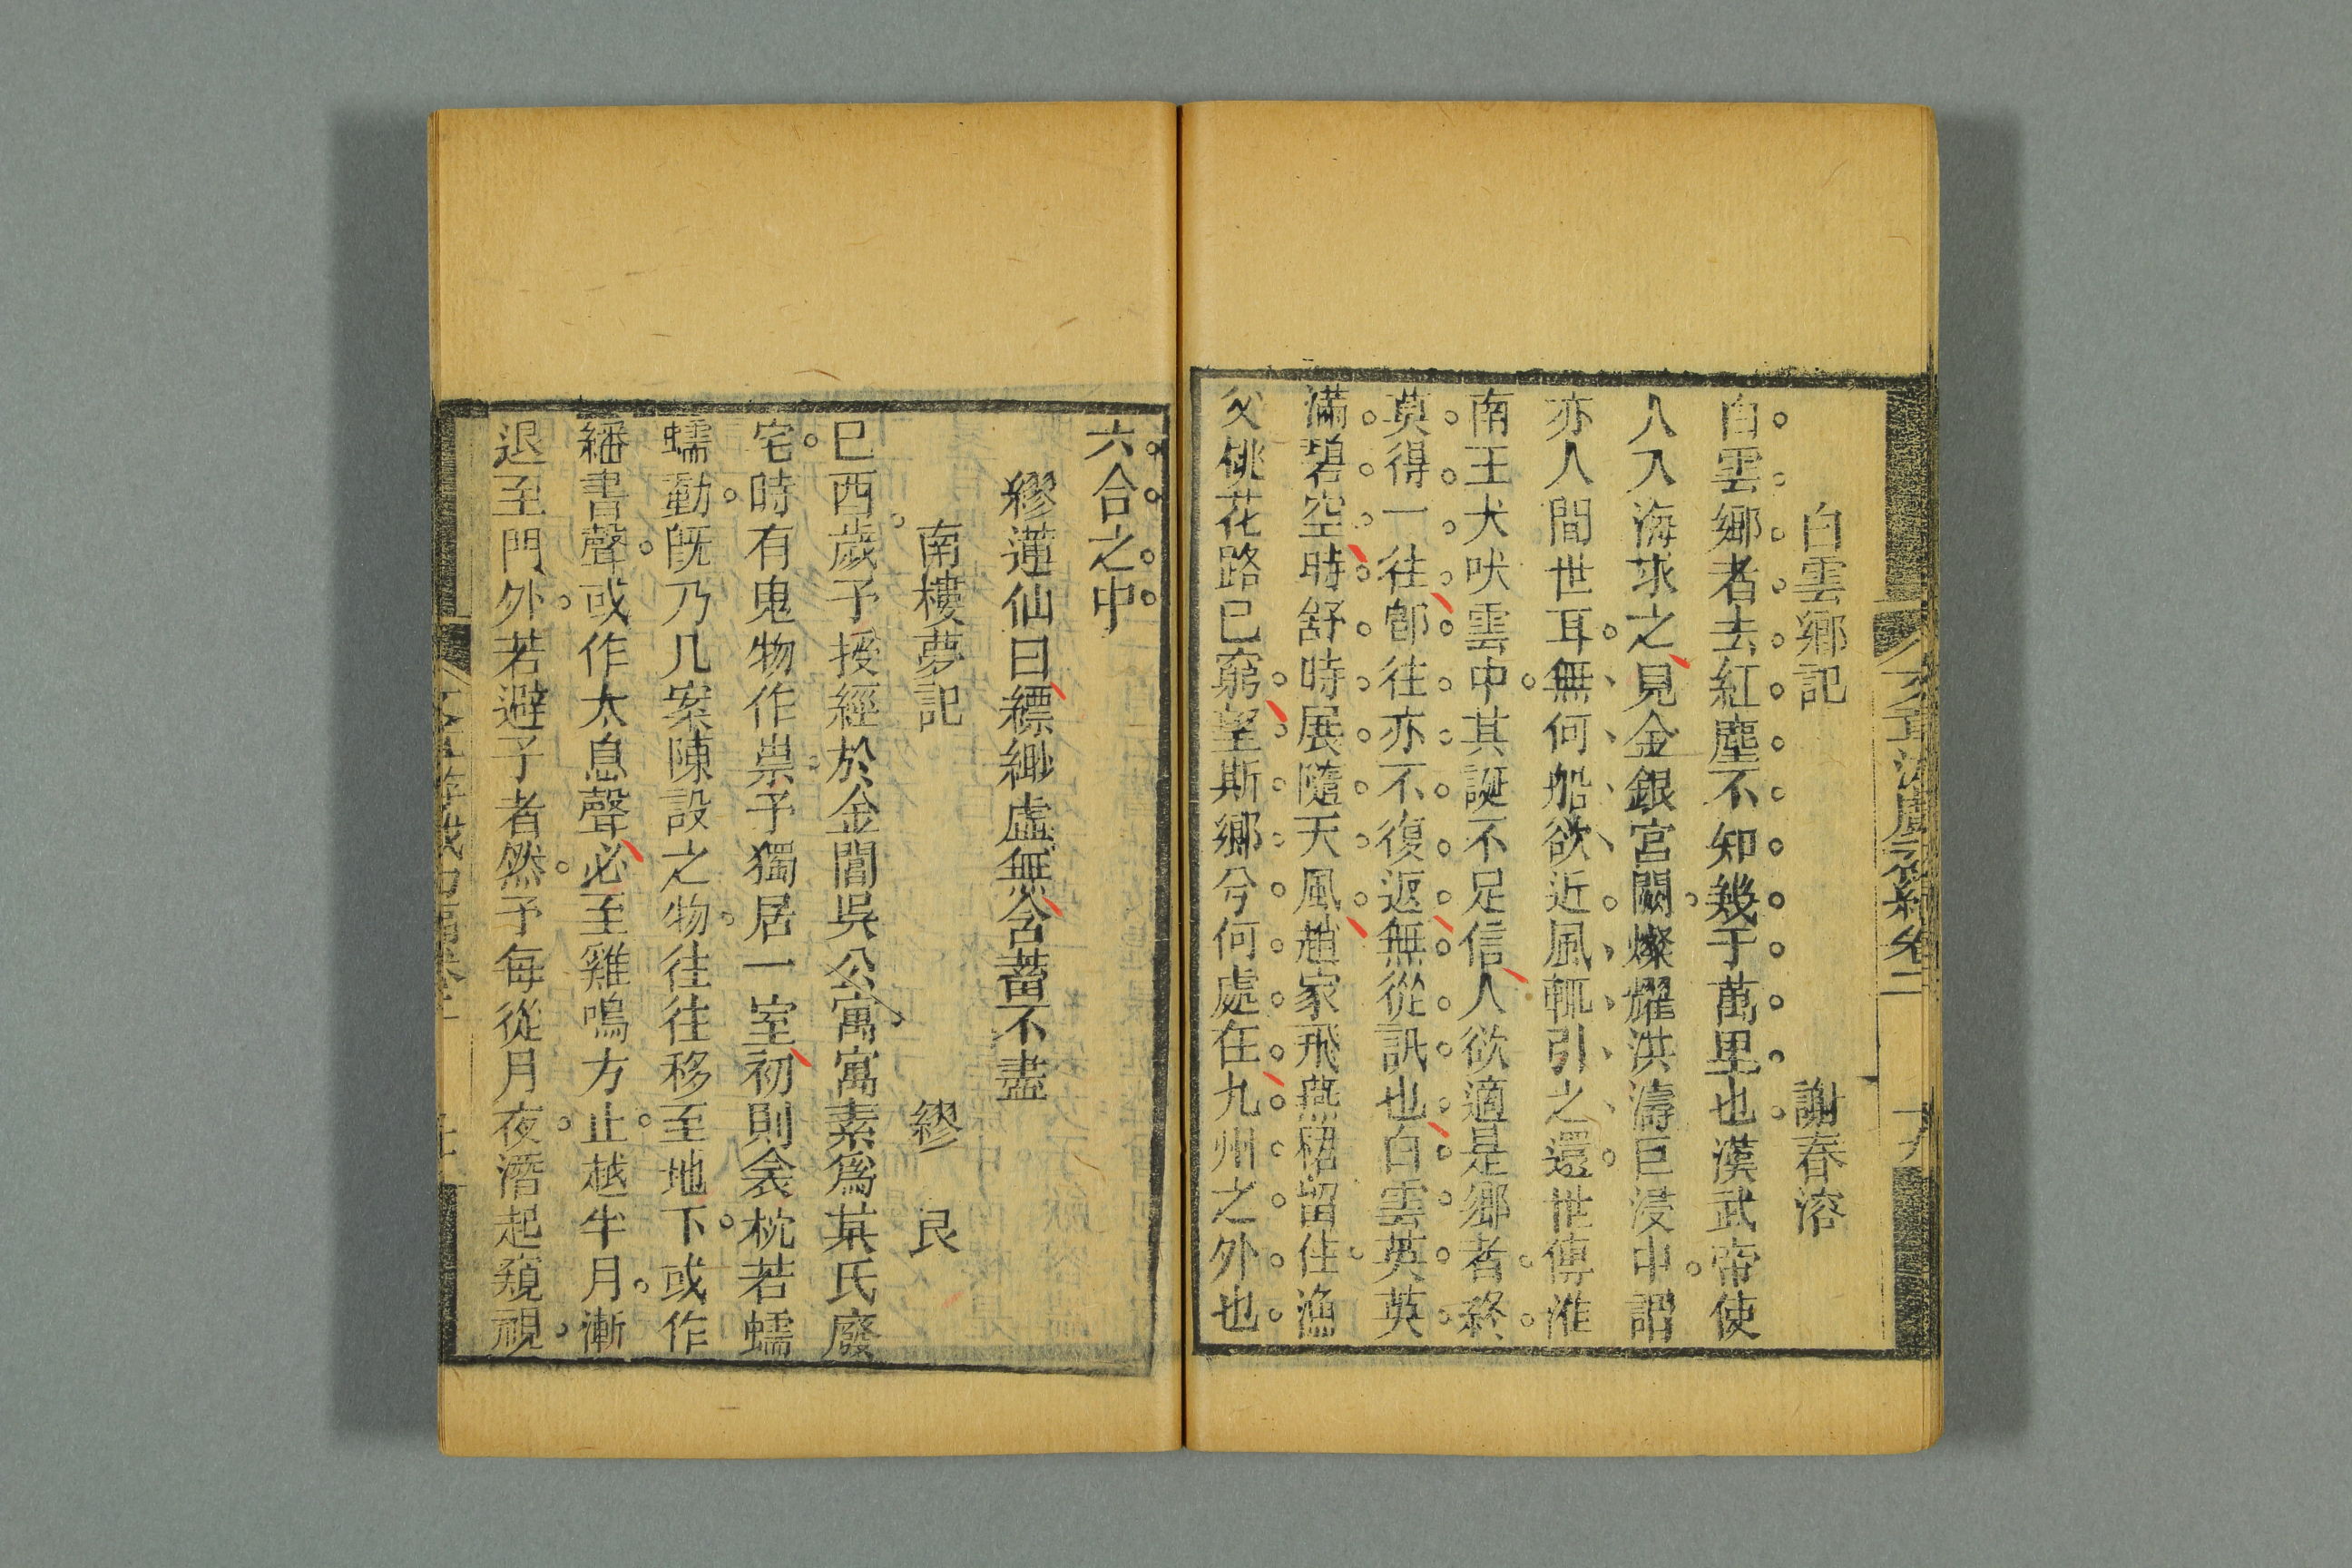 白雲鄉記　謝春溶
白雲鄉者去紅塵不知幾千萬里也漢武帝使
人入海求之見金銀宮闕燦耀洪濤巨浸中謂
亦人間世耳無何船欲近風輒引之還世傳淮
南王犬吠雲中其誕不足信人欲適是鄉者終
莫得一往卽往亦不復返無從訊也白雲英英
滿碧空時舒時展隨天風趙家飛燕裙留住漁
父桃花路已窮望斯鄉兮何處在九州之外也
六合之中
繆蓮仙曰縹緲虛無含蓄不盡
南樓夢記　繆　艮
己酉歲予授經於金閶吳公寓寓素為某氏廢
宅時有鬼物作祟予獨居一室初則衾枕若蠕
蠕動旣乃几案陳設之物往往移至地下或作
繙書聲或作太息聲必至雞鳴方止越半月漸
退至門外若避予者然予每從月夜潛起窺視